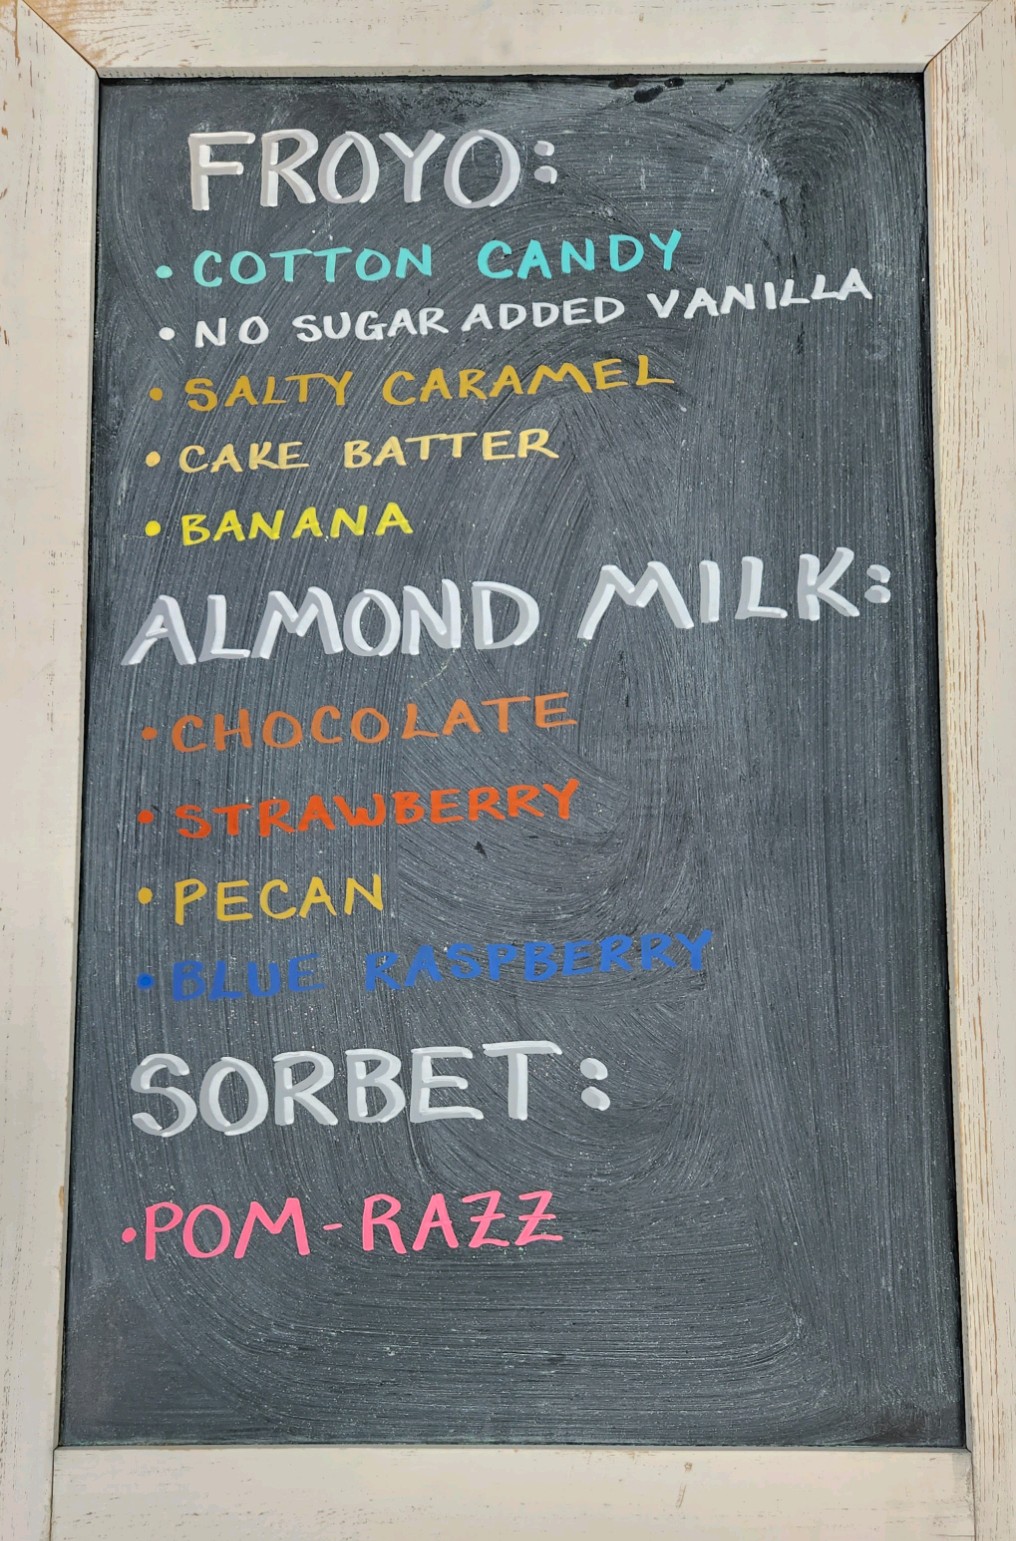 FROYO:
• COTTON CANDY
• NO SUGAR ADDED VANILLA
• SALTY CARAMEL
• CAKE BATTER
• BANANA
ALMOND MILK:
• CHOCOLATE
• STRAWBERRY
• PECAN
• BLUE RASPBERRY
SORBET:
• POM-RAZZ